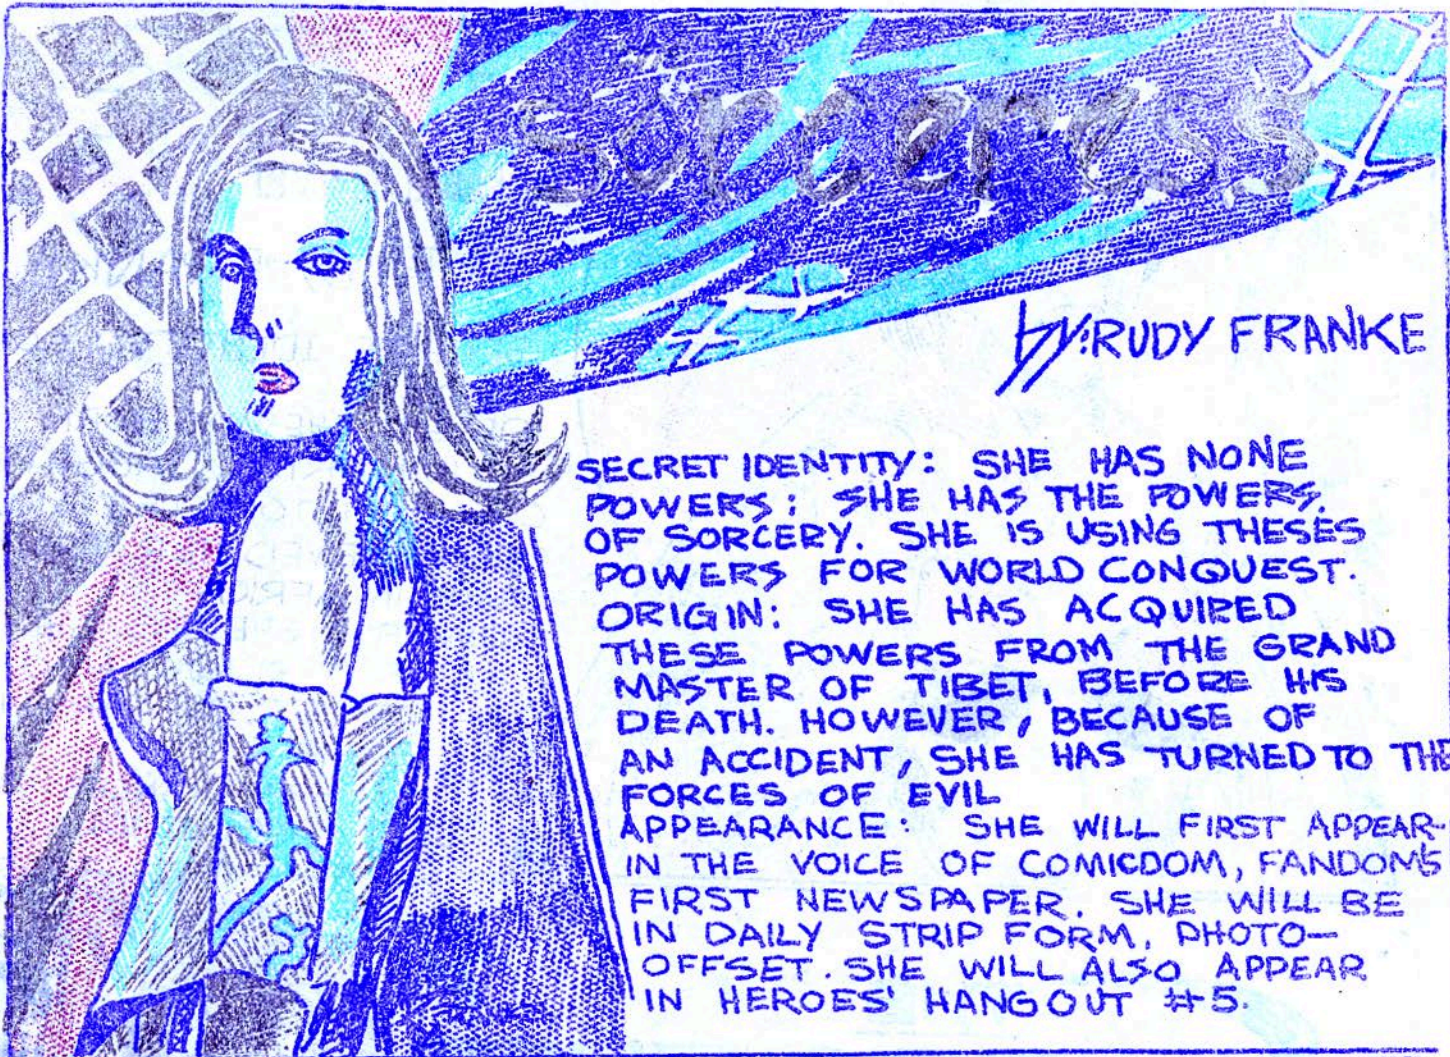 Sorceress
by: RUDY FRANKE
SECRET IDENTITY: SHE HAS NONE
POWERS: SHE HAS THE POWERS.
OF SORCERY. SHE IS USING THESES
POWERS FOR WORLD CONQUEST.
ORIGIN: SHE HAS ACQUIRED
THESE POWERS FROM THE GRAND
MASTER OF TIBET, BEFORE HIS
DEATH. HOWEVER, BECAUSE OF
AN ACCIDENT, SHE HAS TURNED TO THE
FORCES OF EVIL
APPEARANCE: SHE WILL FIRST APPEAR-
IN THE VOICE OF COMICDOM, FANDOM'S
FIRST NEWSPAPER. SHE WILL BE
IN DAILY STRIP FORM, PHOTO-
OFFSET. SHE WILL ALSO APPEAR
IN HEROES' HANGOUT #5.